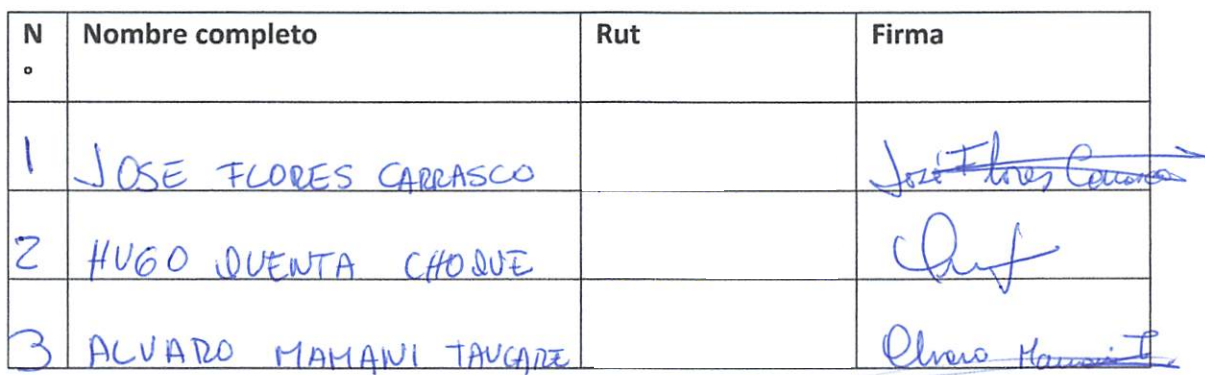 N° Nombre completo Rut Firma
1 JOSE FLORES CARRASCO José Flores Carrasco
2 HUGO QUENTA CHOQUE
3 ALVARO MAMANI TAUCARE Alvaro Mamani T.